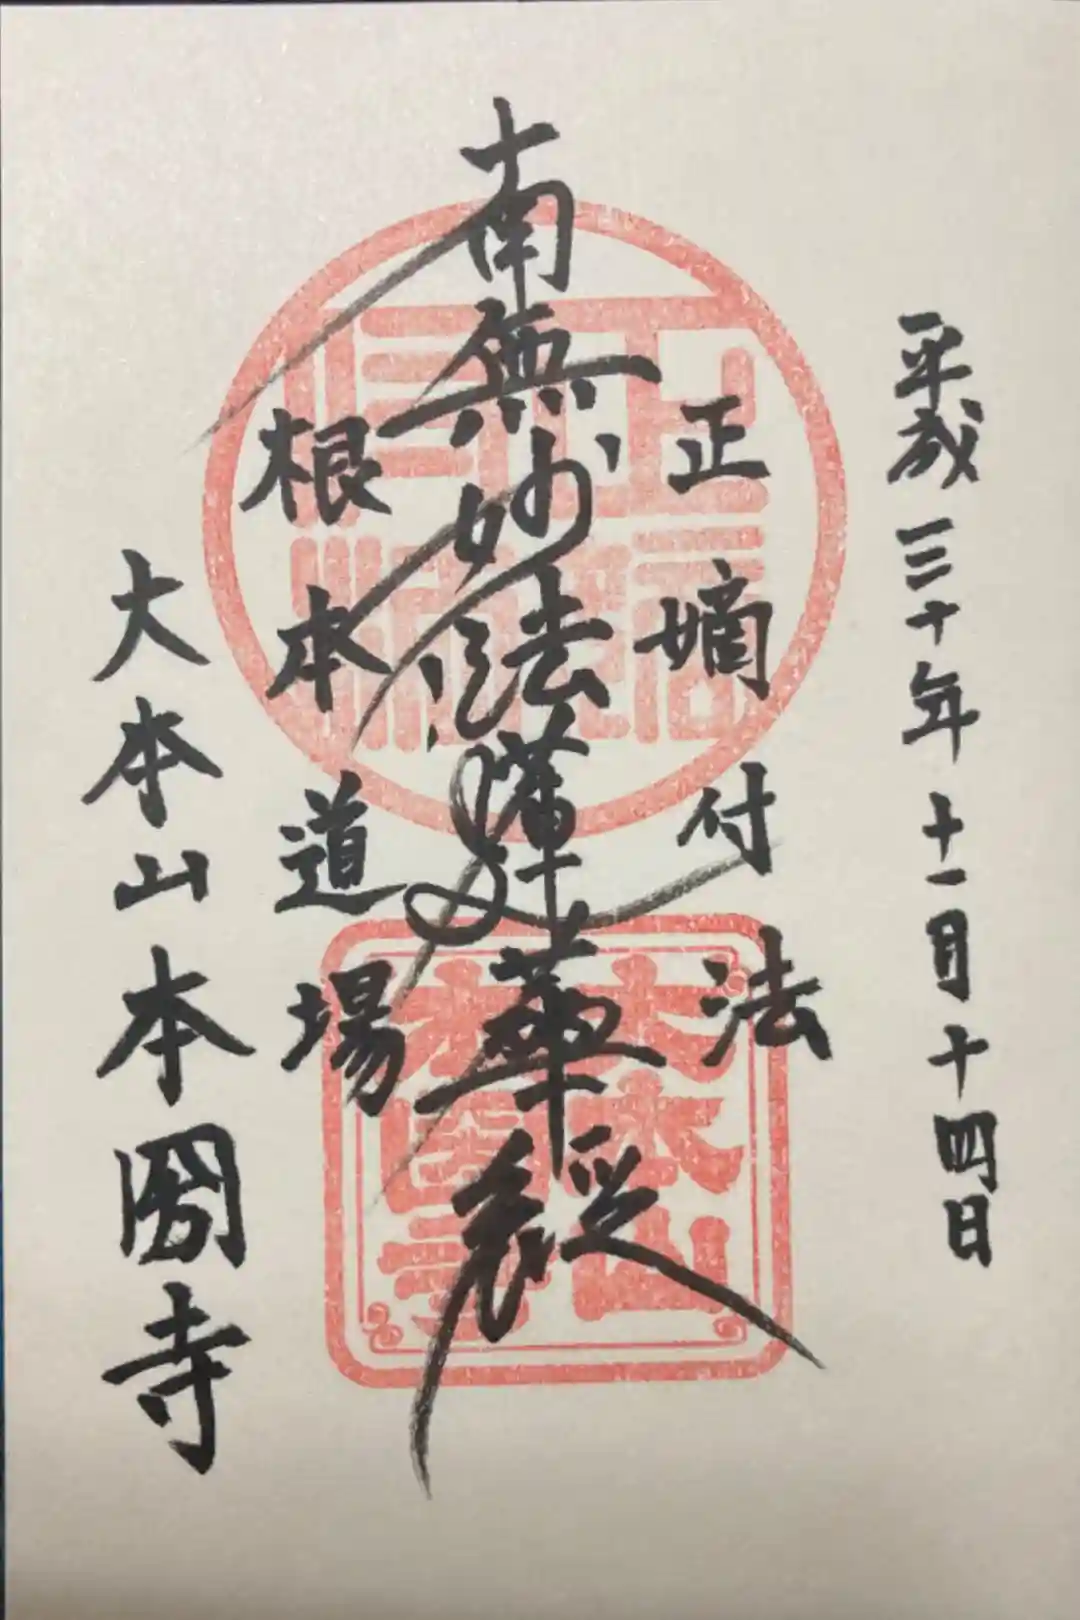 平成三十年十一月十四日
正嫡付法
南無妙法蓮華経
根本道場
大本山本圀寺
大本山
本圀寺